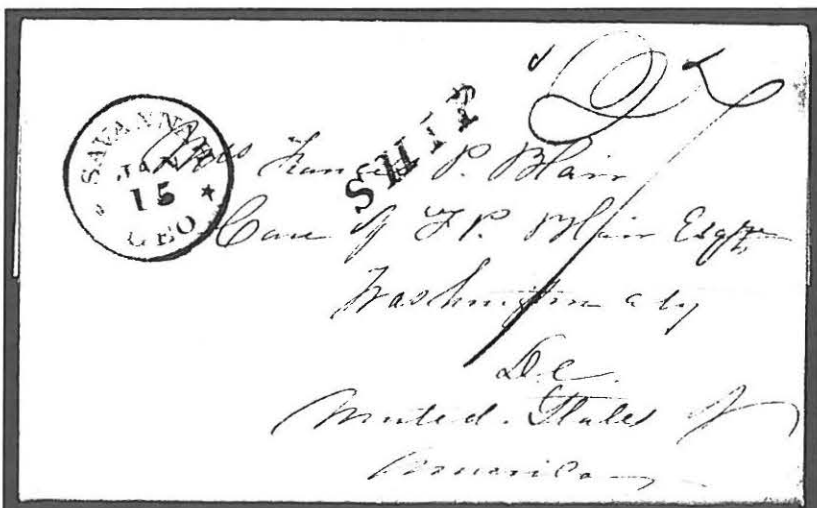 SAVANNAH
JAN
15
GEO
SHIP
27
Miss Frances P. Blair
Care of F P. Blair Esqr
Washington City
D.C.
United States of
America